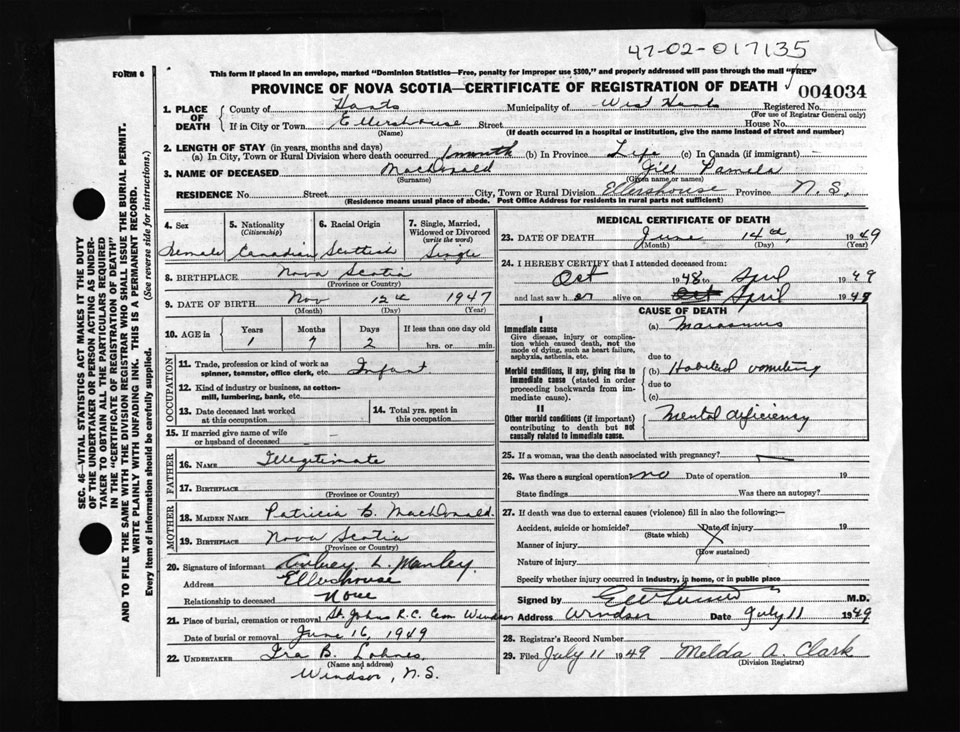 47-02-017135
FORM 6
This form if placed in an envelope, marked "Dominion Statistics—Free, penalty for improper use $300," and properly addressed will pass through the mail "FREE"
PROVINCE OF NOVA SCOTIA—CERTIFICATE OF REGISTRATION OF DEATH
004034
1. PLACE OF DEATH
County of Hants Municipality of West Hants Registered No.
(For use of Registrar General only)
If in City or Town Ellershouse Street House No.
(Name) (If death occurred in a hospital or institution, give the name instead of street and number)
2. LENGTH OF STAY (in years, months and days)
(a) In City, Town or Rural Division where death occurred 1 month (b) In Province Life (c) In Canada (if immigrant)
3. NAME OF DECEASED MacDonald Jill Pamela
(Surname) (Given name or names)
RESIDENCE No. Street City, Town or Rural Division Ellershouse Province N.S.
(Residence means usual place of abode. Post Office Address for residents in rural parts not sufficient)
SEC. 46—VITAL STATISTICS ACT MAKES IT THE DUTY
OF THE UNDERTAKER OR PERSON ACTING AS UNDER-
TAKER TO OBTAIN ALL THE PARTICULARS REQUIRED
IN THE "CERTIFICATE OF REGISTRATION OF DEATH"
AND TO FILE THE SAME WITH THE DIVISION REGISTRAR WHO SHALL ISSUE THE BURIAL PERMIT.
WRITE PLAINLY WITH UNFADING INK. THIS IS A PERMANENT RECORD.
Every item of information should be carefully supplied. (See reverse side for instructions.)
4. Sex
Female
5. Nationality
(Citizenship)
Canadian
6. Racial Origin
Scottish
7. Single, Married,
Widowed or Divorced
(write the word)
Single
8. BIRTHPLACE Nova Scotia
(Province or Country)
9. DATE OF BIRTH Nov 12th 1947
(Month) (Day) (Year)
10. AGE in
Years Months Days If less than one day old
1 7 2 hrs. or min.
OCCUPATION
11. Trade, profession or kind of work as
spinner, teamster, office clerk, etc. Infant
12. Kind of industry or business, as cotton-
mill, lumbering, bank, etc.
13. Date deceased last worked
at this occupation
14. Total yrs. spent in
this occupation
15. If married give name of wife
or husband of deceased
FATHER
16. NAME Illegitimate
17. BIRTHPLACE
(Province or Country)
MOTHER
18. MAIDEN NAME Patricia B. MacDonald
19. BIRTHPLACE Nova Scotia
(Province or Country)
20. Signature of informant Aubrey L. Manley
Address Ellershouse
Relationship to deceased None
21. Place of burial, cremation or removal St. Johns R.C. Cem Windsor
Date of burial or removal June 16, 1949
22. UNDERTAKER Ira B. Lohnes,
(Name and address)
Windsor, N.S.
MEDICAL CERTIFICATE OF DEATH
23. DATE OF DEATH June 14th, 1949
(Month) (Day) (Year)
24. I HEREBY CERTIFY that I attended deceased from:
Oct 1948 to April 1949
and last saw her alive on Oct April 1949
CAUSE OF DEATH
I
Immediate cause
Give disease, injury or complica-
tion which caused death, not the
mode of dying, such as heart failure,
asphyxia, asthenia, etc.
(a) Marasmus
due to
Morbid conditions, if any, giving rise to
immediate cause (stated in order
proceeding backwards from im-
mediate cause).
(b) Habitual vomiting
due to
(c)
II
Other morbid conditions (if important)
contributing to death but not
causally related to immediate cause.
Mental deficiency
25. If a woman, was the death associated with pregnancy?
26. Was there a surgical operation? no Date of operation 19
State findings Was there an autopsy?
27. If death was due to external causes (violence) fill in also the following:—
Accident, suicide or homicide? Date of injury 19
(State which)
Manner of injury
(How sustained)
Nature of injury
Specify whether injury occurred in industry, in home, or in public place
Signed by M.D.
Address Windsor Date July 11 1949
28. Registrar's Record Number
29. Filed July 11 1949 Melda A. Clark
(Division Registrar)